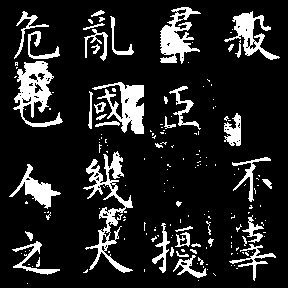 殺不辜
羣臣擾
亂國幾大
危也人之